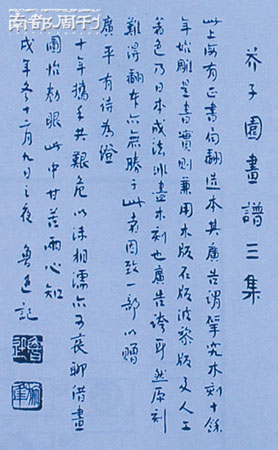 南都周刊
芥子園畫譜三集
此上海有正書局翻造本其廣告謂研究木刻十餘
年始雕是書實則兼用木版石版波黎版及人工
著色乃日本成法非盡木刻也廣告誇耳然原刻
難得翻本亦無勝于此者因致一部以贈
廣平有詩為證
十年攜手共艱危以沫相濡亦可哀聊借畫
圖怡倦眼此中甘苦兩心知
戌年冬十二月九日之夜 魯迅記
魯迅